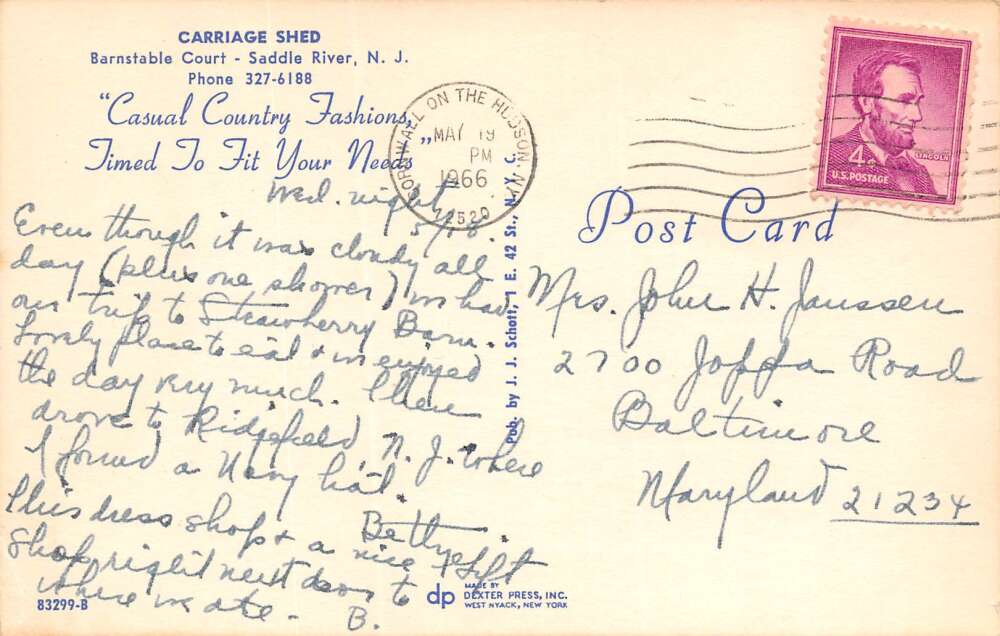 CARRIAGE SHED
Barnstable Court - Saddle River, N. J.
Phone 327-6188
"Casual Country Fashions,
Timed To Fit Your Needs"
CORNWALL ON THE HUDSON, N.Y.
MAY 19
PM
1966
12520
4¢
LINCOLN
U.S. POSTAGE
Wed. night,
5/18.
Even though it was cloudy all
day (plus one shower) we had
our trip to Strawberry Barn.
Lovely place to eat & we enjoyed
the day very much. Then
drove to Ridgefield, N. J. where
I found a Navy hat.
Betty.
This dress shop & a nice gift
shop right next door to
where we ate. B.
Pub. by J. J. Schott, 1 E. 42 St., N. Y. C.
Post Card
Mrs. John H. Janssen
2700 Joppa Road
Baltimore
Maryland 21234
83299-B
dp MADE BY
DEXTER PRESS, INC.
WEST NYACK, NEW YORK